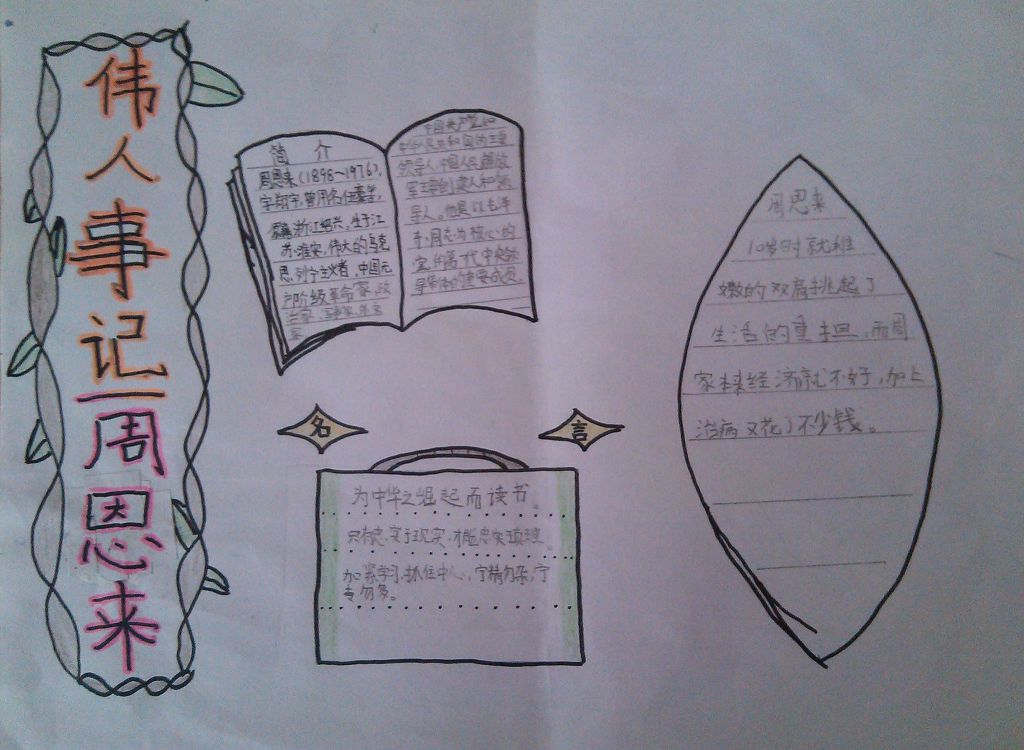 伟人事记|周恩来
简介
周恩来(1898~1976),
字翔宇,曾用名伍豪等,
浙江绍兴,生于江
苏淮安,伟大的马克
思列宁主义者,中国无
产阶级革命家、政
治家、军事家、外交
家
中国共产党和
中华人民共和国的主要
领导人,中国人民解放
军主要创建人和领
导人。他是以毛泽
东同志为核心的
党的第一代中央领
导集体的重要成员。
名言
为中华之崛起而读书。
只有忠实于现实,才能忠实真理。
加紧学习,抓住中心,宁精勿杂,宁
专勿多。
周恩来
10岁时就用稚
嫩的双肩挑起了
生活的重担,而周
家本来经济就不好,加上
治病又花了不少钱。